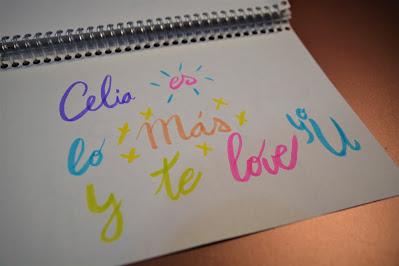 Celia es
lo más
y te love yoU